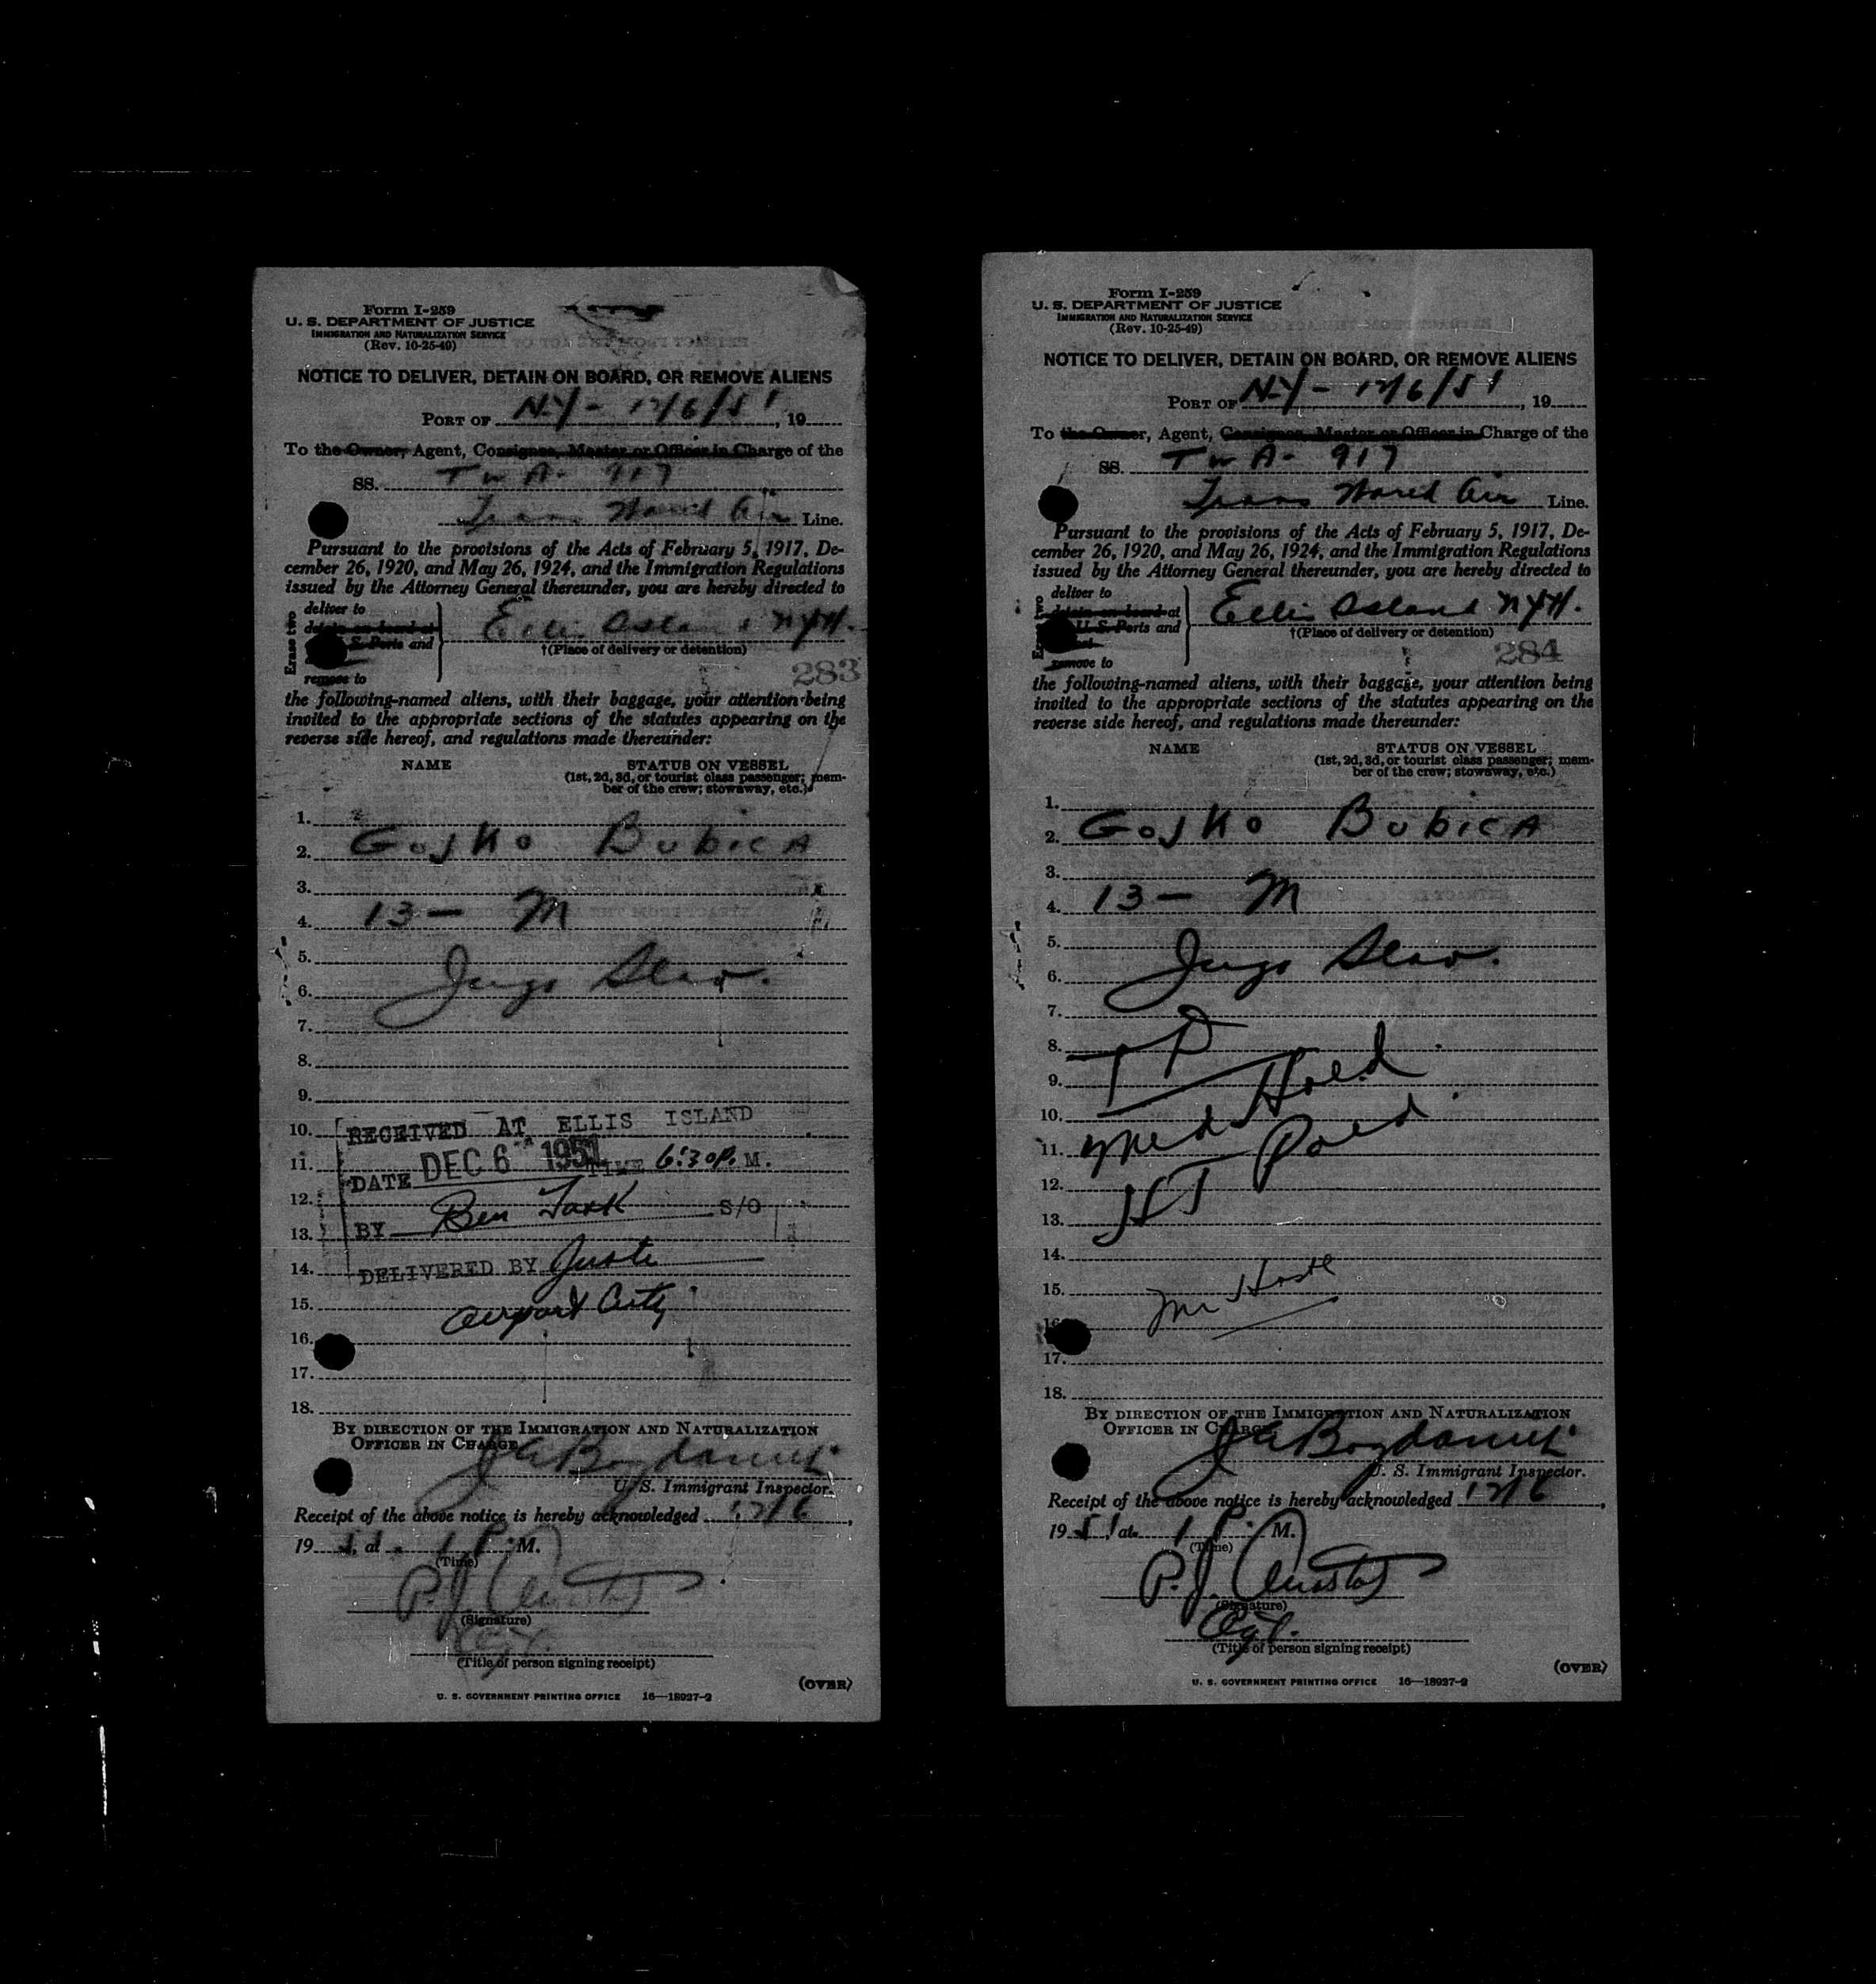 Form I-259
U. S. DEPARTMENT OF JUSTICE
IMMIGRATION AND NATURALIZATION SERVICE
(Rev. 10-25-49)
NOTICE TO DELIVER, DETAIN ON BOARD, OR REMOVE ALIENS
PORT OF N-Y- 12/6/51, 19
To the Owner, Agent, Consignee, Master or Officer in Charge of the
SS. TWA- 917
Trans World Air Line.
Pursuant to the provisions of the Acts of February 5, 1917, De-
cember 26, 1920, and May 26, 1924, and the Immigration Regulations
issued by the Attorney General thereunder, you are hereby directed to
Erase two
deliver to
detain on board at
U. S. Ports and
remove to
Ellis Island NYH.
†(Place of delivery or detention)
283
the following-named aliens, with their baggage, your attention being
invited to the appropriate sections of the statutes appearing on the
reverse side hereof, and regulations made thereunder:
NAME STATUS ON VESSEL
(1st, 2d, 3d, or tourist class passenger; mem-
ber of the crew; stowaway, etc.)
1.
2. Gojko Bubica
3.
4. 13- M
5.
6. Jugo Slav.
7.
8.
9.
10. RECEIVED AT ELLIS ISLAND
11. DATE DEC 6 1951 TIME 6:30 P. M.
12.
BY Ben S/O
13.
14. DELIVERED BY
15. Airport
16.
17.
18.
BY DIRECTION OF THE IMMIGRATION AND NATURALIZATION
OFFICER IN CHARGE
U. S. Immigrant Inspector.
Receipt of the above notice is hereby acknowledged 12/6,
1951, at 1 P. M.
(Time)
P.J.
(Signature)
Agt.
(Title of person signing receipt)
(OVER)
U. S. GOVERNMENT PRINTING OFFICE 16—18927-2
Form I-259
U. S. DEPARTMENT OF JUSTICE
IMMIGRATION AND NATURALIZATION SERVICE
(Rev. 10-25-49)
NOTICE TO DELIVER, DETAIN ON BOARD, OR REMOVE ALIENS
PORT OF N-Y- 12/6/51, 19
To the Owner, Agent, Consignee, Master or Officer in Charge of the
SS. TWA- 917
Trans World Air Line.
Pursuant to the provisions of the Acts of February 5, 1917, De-
cember 26, 1920, and May 26, 1924, and the Immigration Regulations
issued by the Attorney General thereunder, you are hereby directed to
deliver to
detain on board at
U. S. Ports and
remove to
Ellis Island NYH.
†(Place of delivery or detention)
284
the following-named aliens, with their baggage, your attention being
invited to the appropriate sections of the statutes appearing on the
reverse side hereof, and regulations made thereunder:
NAME STATUS ON VESSEL
(1st, 2d, 3d, or tourist class passenger; mem-
ber of the crew; stowaway, etc.)
1.
2. Gojko Bubica
3.
4. 13- M
5.
6. Jugo Slav.
7.
8. TD
9.
10. Med Hold
11.
12.
13.
14.
15.
16.
17.
18.
BY DIRECTION OF THE IMMIGRATION AND NATURALIZATION
OFFICER IN CHARGE
U. S. Immigrant Inspector.
Receipt of the above notice is hereby acknowledged 12/6,
1951, at 1 P. M.
(Time)
P.J.
(Signature)
Agt.
(Title of person signing receipt)
(OVER)
U. S. GOVERNMENT PRINTING OFFICE 16—18927-2